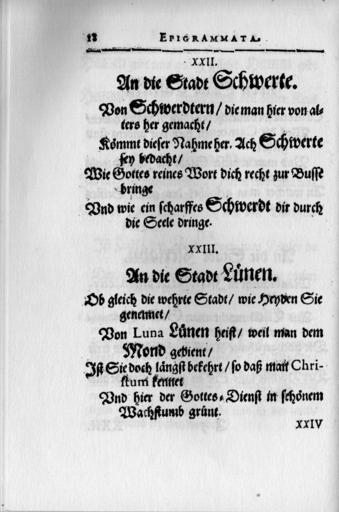 18 EPIGRAMMATA.
XXII.
An die Stadt Schwerte.
Von Schwerdtern / die man hier von al-
ters her gemacht /
Kömmt dieser Nahme her. Ach Schwerte
sey bedacht /
Wie Gottes reines Wort dich recht zur Busse
bringe
Vnd wie ein scharffes Schwerdt dir durch
die Seele dringe.
XXIII.
An die Stadt Lünen.
Ob gleich die wehrte Stadt / wie Heyden Sie
genennet /
Von Luna Lünen heist / weil man dem
Mond gedient /
Ist Sie doch längst bekehrt / so daß man Chri-
stum kennet
Vnd hier der Gottes-Dienst in schönem
Wachstumb grünt.
XXIV